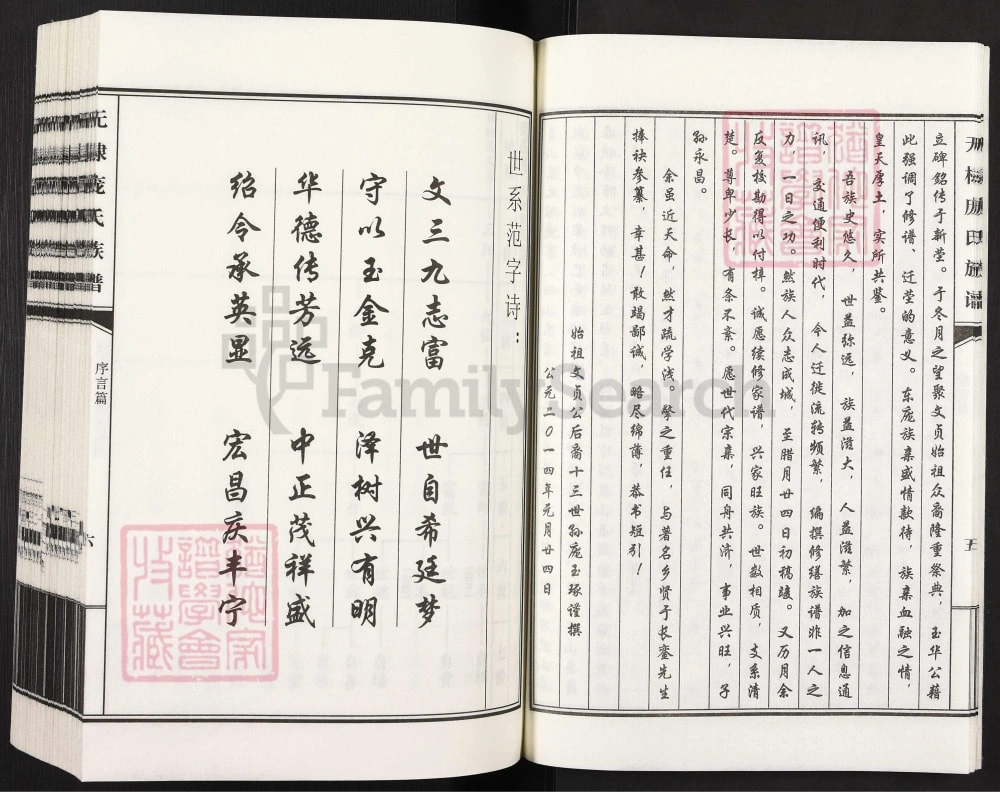 立碑铭传于新茔。于冬月之望聚文贞始祖众裔隆重祭典，玉华公藉
此强调了修谱、迁茔的意义。东庞族亲盛情款待，族亲血融之情，
皇天厚土，实所共鉴。
吾族史悠久，世益弥远，族益滋大，人益滋繁，加之信息通
讯，交通便利时代，令人迁徙流转频繁，编撰修缮族谱非一人之
力，一日之功。然族人众志成城，至腊月廿四日初稿竣。又历月余
反复校勘得以付梓。诚愿续修家谱，兴家旺族。世数相质，支系清
楚。尊卑少长，有条不紊。愿世代宗亲，同舟共济，事业兴旺，子
孙永昌。
余虽近天命，然才疏学浅。擎之重任，与著名乡贤于长銮先生
捧袂参纂，幸甚！敢竭鄙诚，略尽绵薄，恭书短引！
始祖文贞公后裔十三世孙庞玉琢谨撰
公元二0一四年元月廿四日
五
世系范字诗：
文三九志富 世自希廷梦
守以玉金克 泽树兴有明
华德传芳远 中正茂祥盛
绍令承英显 宏昌庆丰宁
序言篇
六
氏族谱
FamilySearch